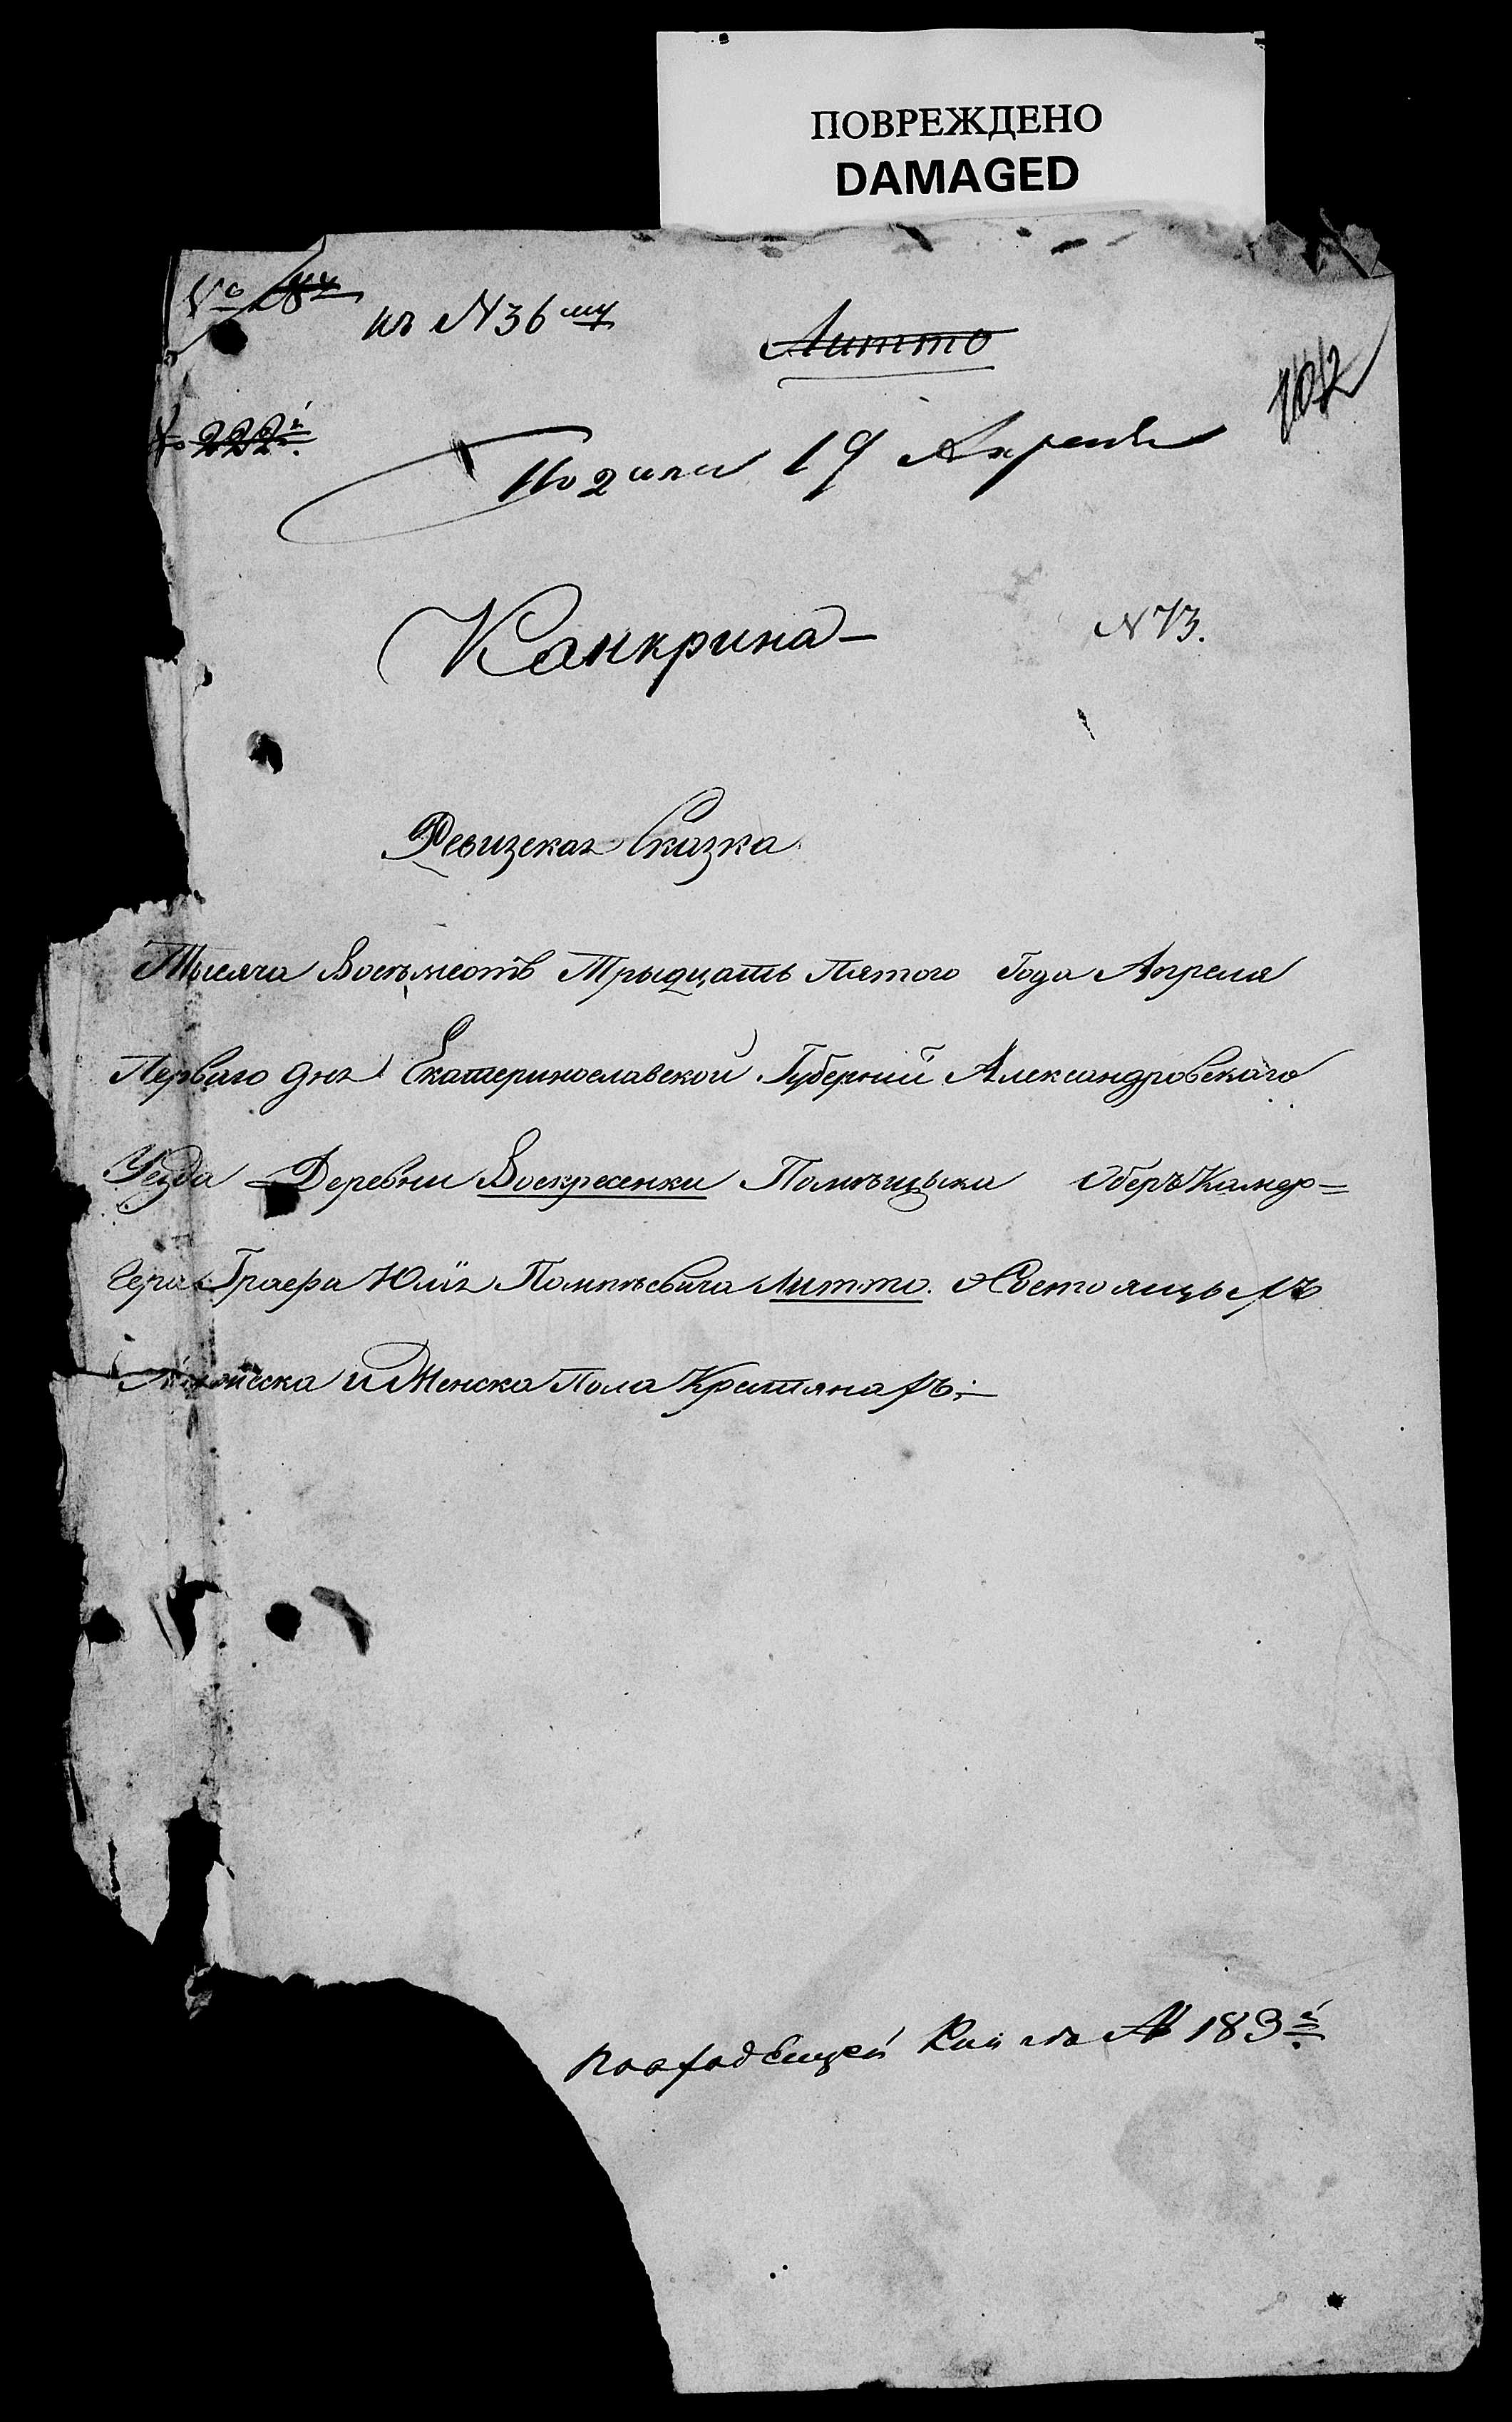 ПОВРЕЖДЕНО
DAMAGED
къ №36му
Литто
№ 222й
19 Апреля
Канкрина
№73.
Ревизская Сказка
Тысяча Восемьсотъ Трыдцать Пятого Года Апреля
Перваго дня Екатеринославской Губернии Александровскаго
Уезда Деревни Воскресенки Помѣщыка Оберъ Камер=
гера Графа Юлия Помпѣевича Литто. О Состоящыхъ
и Женска Пола Крестянахъ:—
№ 183й